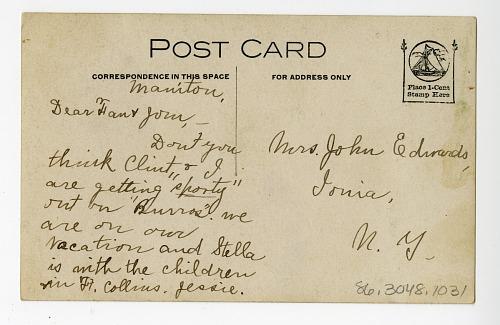 POST CARD
CORRESPONDENCE IN THIS SPACE
FOR ADDRESS ONLY
Place 1-Cent
Stamp Here
Manitou,
Dear Fan & Jom,—
Don't you
think Clint & I
are getting "sporty"
out on "Burros". we
are on our
vacation and Stella
is with the children
in Ft. Collins. Jessie.
Mrs. John Edwards,
Ionia,
N. Y.
86.3048.1031